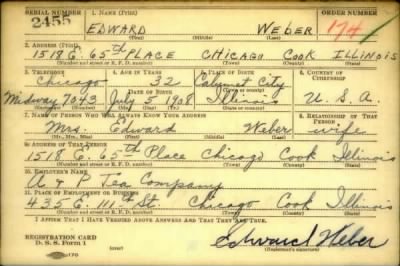 SERIAL NUMBER 1. NAME (Print) ORDER NUMBER
2455 EDWARD WEBER 174
(First) (Middle) (Last)
2. ADDRESS (Print)
1518 E. 65th PLACE CHICAGO COOK ILLINOIS
(Number and street or R. F. D. number) (Town) (County) (State)
3. TELEPHONE 4. AGE IN YEARS 5. PLACE OF BIRTH 6. COUNTRY OF CITIZENSHIP
Chicago 32 Calumet City
DATE OF BIRTH
Midway 7043 July 5 1908 Illinois U. S. A.
7. NAME OF PERSON WHO WILL ALWAYS KNOW YOUR ADDRESS 8. RELATIONSHIP OF THAT PERSON
Mrs. Edward Weber wife
(Mr., Mrs., Miss) (First) (Middle) (Last)
9. ADDRESS OF THAT PERSON
1518 E. 65th Place Chicago Cook Illinois
(Number and street or R. F. D. number) (Town) (County) (State)
10. EMPLOYER'S NAME
A & P Tea Company
11. PLACE OF EMPLOYMENT OR BUSINESS
435 E. 111th St. Chicago Cook Illinois
(Number and street or R. F. D. number) (Town) (County) (State)
I AFFIRM THAT I HAVE VERIFIED ABOVE ANSWERS AND THAT THEY ARE TRUE.
REGISTRATION CARD
D. S. S. Form 1 Edward Weber
(Registrant's signature)